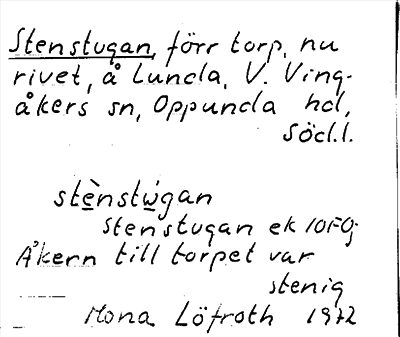 Stenstugan, förr torp, nu
rivet, å Lunda, V. Ving-
åkers sn, Oppunda hd,
Södl.
stènstẁgan
Stenstugan ek 10F0j
Åkern till torpet var
stenig
Mona Löfroth 1972